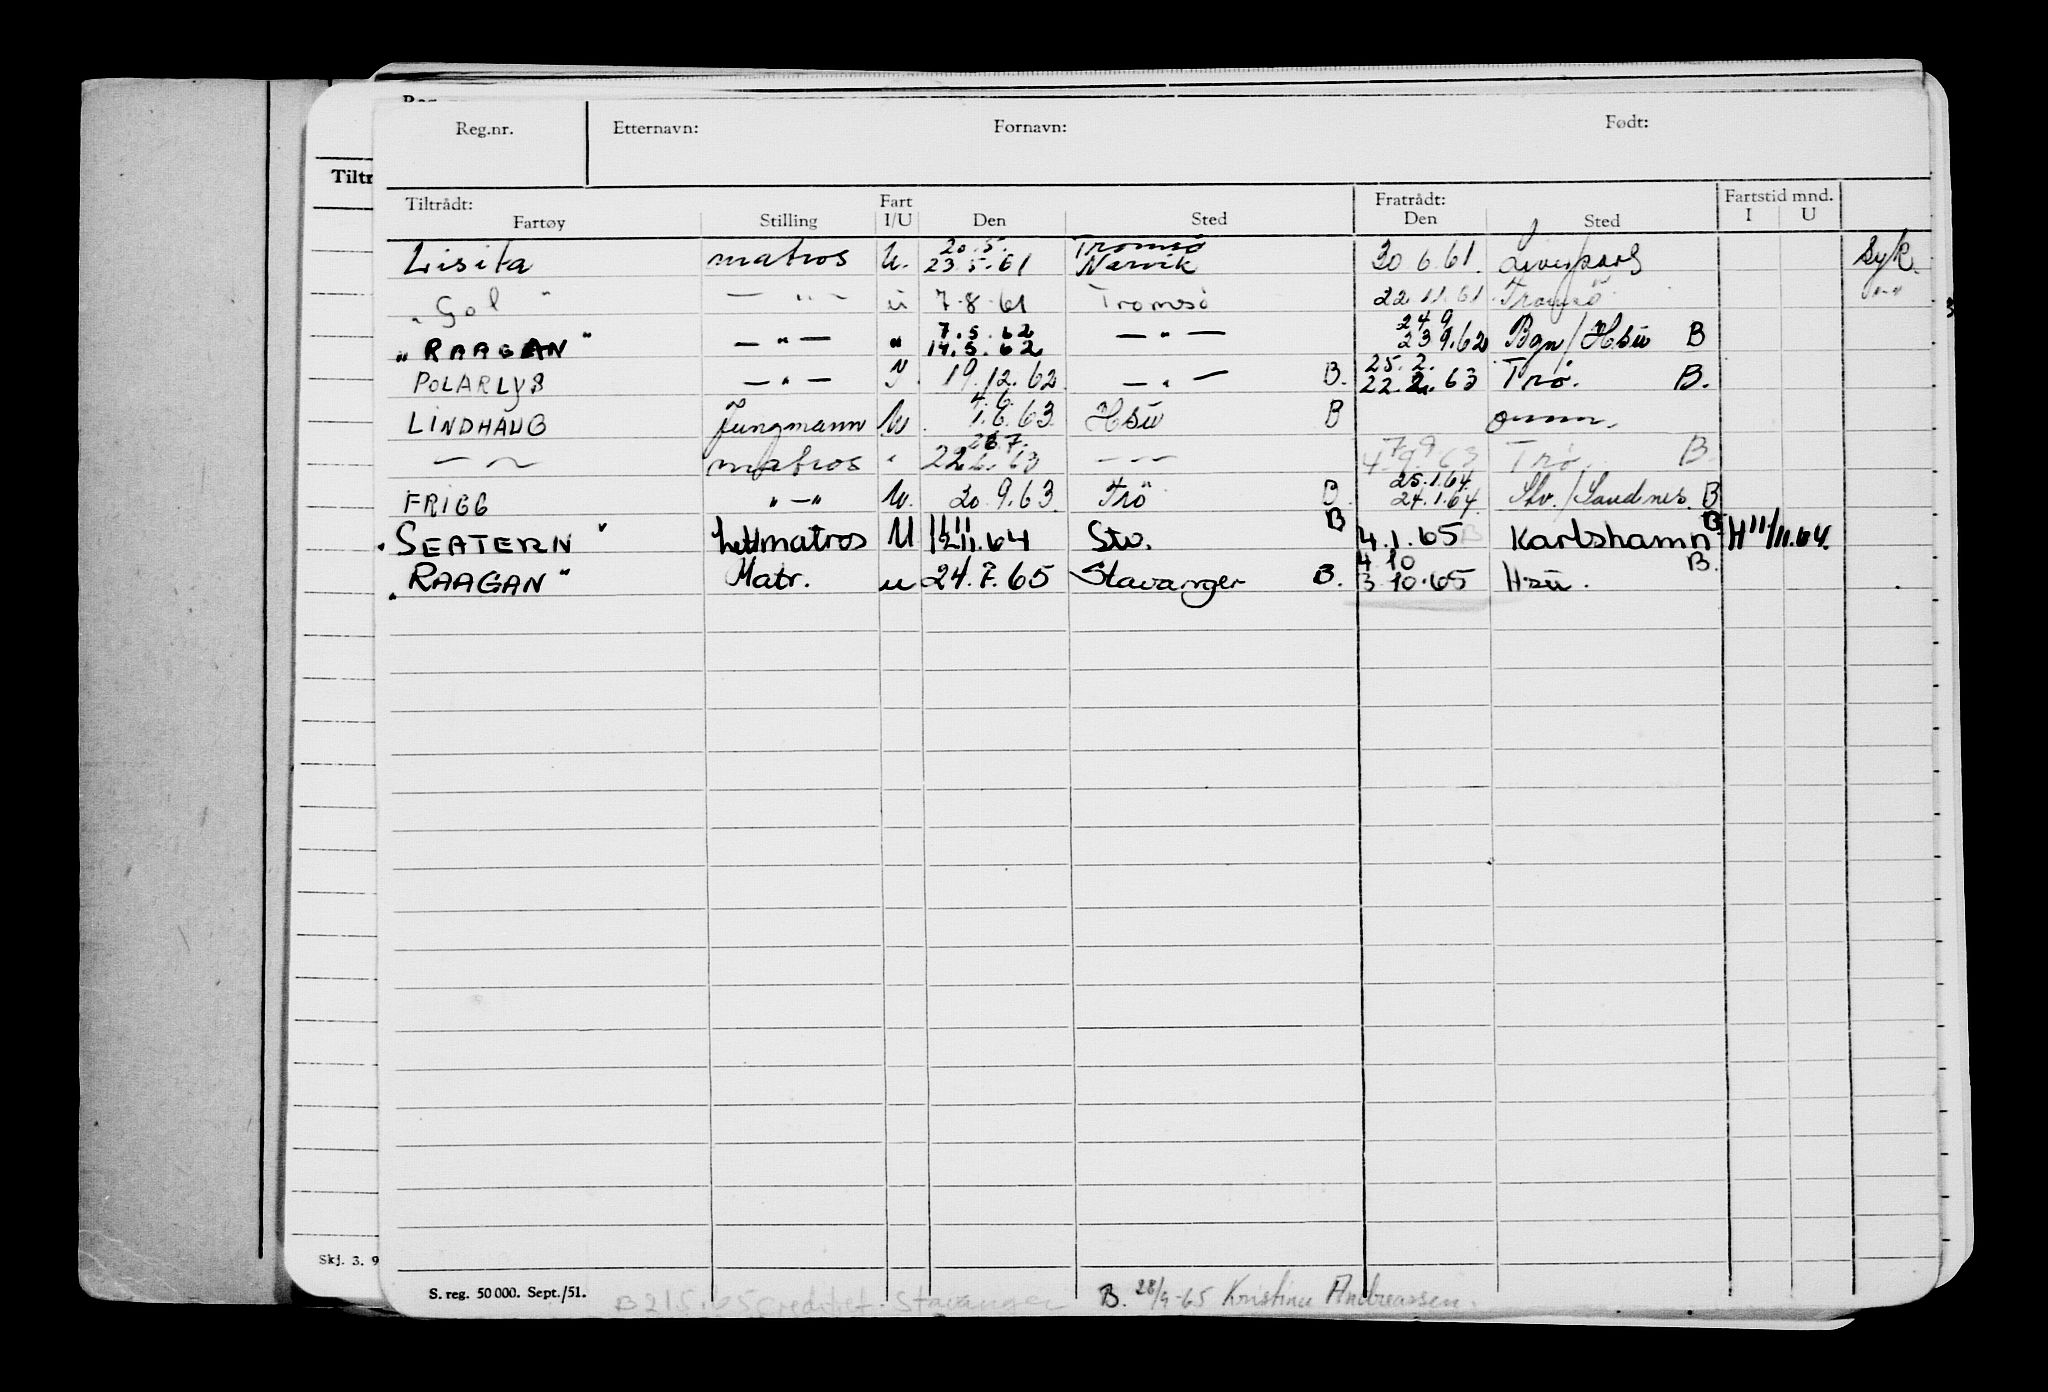 Reg.nr. Etternavn: Fornavn: Født:
Tiltr
Tiltrådt: Fart Fratrådt: Fartstid mnd.
Fartøy Stilling I/U Den Sted Den Sted I U
20.5. Tromsø
Lisita matros U. 23.5.61 Narvik 30 6.61. Liverpool Syk.
"Gol" — " — u 7-8-61 Tromsö 22.11.61 Tromsö
7.5.62 24 9
"RAAGAN" — " — " 14.5.62 — " — 23 9.62 Bgn/Hsu B
25.2.
POLARLYS — " — I. 19.12.62 — " — B. 22.2.63 Trö. B.
4.6.
LINDHAUG Jungmann U. 1.6.63 Hsu B omm.
7 9
— " — matros " 22.6.63 — " — 4.9.63 Trö. B
25.1.64
FRIGG " — " U. 20.9.63. Trö B. 24.1.64. Stv./Sandnes. B
11
"SEATERN" Lettmatros U 12.11.64 Stv. B 4.1.65 Karlshamn B H 11/11.64.
4 10
"RAAGAN" Matr. u 24.7.65 Stavanger B. 3.10.65 Hsu. B.
Skj. 3. 9
S. reg. 50 000. Sept./51. B 21 5.65 Stavanger B. 28/9-65 Kristine Andreassen.